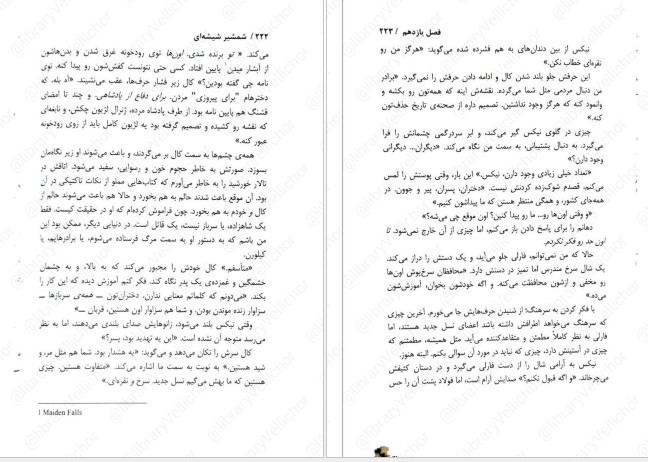 ۲۲۲ / شمشیر شیشه‌ای
می‌کند. « تو برنده شدی. اون‌ها توی رودخونه غرق شدن و بدن‌هاشون
از آبشار میدن¹ پایین افتاد. کسی حتی نتونست کفش‌شون رو پیدا کنه. توی
نامه چی گفته بودین؟» کال زیر فشار حرف‌ها، عقب می‌نشیند. «آه بله، که
دخترهام "برای پیروزی" مردن. برای دفاع از پادشاهی. و چند تا امضای
قشنگ هم پایین نامه بود. از طرف پادشاه مرده، ژنرال لژیون چکش، و نابغه‌ای
که نقشه رو کشیده و تصمیم گرفته بود یه لژیون کامل باید از روی رودخونه
عبور کنه.»
همه‌ی چشم‌ها به سمت کال بر می‌گردند، و باعث می‌شوند او زیر نگاه‌مان
بسوزد. صورتش به خاطر هجوم خون و رسوایی، سفید می‌شود. اتاقش در
تالار خورشید را به خاطر می‌آورم که کتاب‌هایی مملو از نکات تاکتیکی در آن
بود. آن موقع باعث شدند حالم به هم بخورد و حالا هم باعث می‌شوند حالم از
کال و خودم به هم بخورد. چون فراموش کرده‌ام که او در حقیقت کیست. فقط
یک شاهزاده، یا سرباز نیست، یک قاتل است. در دنیایی دیگر، ممکن بود این
من باشم که به دستور او به سمت مرگ فرستاده می‌شوم، یا برادرهایم، یا
کیلورن.
«متأسفم.» کال خودش را مجبور می‌کند که به بالا، و به چشمان
خشمگین و غمزده‌ی یک پدر نگاه کند. فکر کنم آموزش دیده که این کار را
بکند. «می‌دونم که کلماتم معنایی ندارن. دختران‌تون ــ همه‌ی سربازها ــ
سزاوار زنده موندن بودن، و شما هم سزاوار اون هستین، قربان ــ»
وقتی نیکس بلند می‌شود، زانوهایش صدای بلندی می‌دهند، اما به نظر
می‌رسد متوجه آن نشده است. «این یه تهدید بود، پسر؟»
کال سرش را تکان می‌دهد و می‌گوید: «یه هشدار بود. شما هم مثل مر، و
شید هستین.» به نوبت به سمت ما اشاره می‌کند. «متفاوت هستین. چیزی
هستین که ما بهش می‌گیم نسل جدید. سرخ و نقره‌ای.»
1 Maiden Falls
فصل یازدهم / ۲۲۳
نیکس از بین دندان‌های به هم فشرده شده می‌گوید: «هرگز من رو
نقره‌ای خطاب نکن.»
این حرفش جلو بلند شدن کال و ادامه دادن حرفش را نمی‌گیرد. «برادر
من دنبال مردمی مثل شما می‌گرده. نقشه‌ش اینه که همه‌تون رو بکشه و
وانمود کنه که هرگز وجود نداشتین. تصمیم داره از صحنه‌ی تاریخ حذف‌تون
کنه.»
چیزی در گلوی نیکس گیر می‌کند، و ابر سردرگمی چشمانش را فرا
می‌گیرد. به دنبال پشتیبانی، به سمت من نگاه می‌کند. «دیگران... دیگرانی
وجود دارن؟»
«تعداد خیلی زیادی وجود دارن، نیکس.» این بار، وقتی پوستش را لمس
می‌کنم، قصدم شوک‌زده کردنش نیست. «دختران، پسران، پیر و جوون. در
همه‌جای کشور، و همگی منتظر هستن که ما پیداشون کنیم.»
«و وقتی اون‌ها رو... ما رو پیدا کنین؟ اون موقع چی می‌شه؟»
دهانم را برای پاسخ دادن باز می‌کنم، اما چیزی از آن خارج نمی‌شود. تا
اون حد رو فکر نکردم.
حالا که من نمی‌توانم، فارلی جلو می‌آید، و یک دستش را دراز می‌کند.
یک شال سرخ مندرس اما تمیز در دستش دارد. «محافظان سرخ‌پوش اون‌ها
رو مخفی و ازشون محافظت می‌کنه. و اگه خودشون بخوان، آموزش‌شون
می‌ده.»
با فکر کردن به سرهنگ؛ از شنیدن حرف‌هایش جا می‌خورم. آخرین چیزی
که سرهنگ می‌خواهد اطرافش داشته باشد اعضای نسل جدید هستند، اما
فارلی به نظر کاملاً مطمئن و متقاعدکننده می‌آید. مثل همیشه، مطمئنم که
چیزی در آستینش دارد، چیزی که نباید در مورد آن سوالی بکنم. البته هنوز.
نیکس به آرامی شال را از دست فارلی می‌گیرد و در دستان کثیفش
می‌چرخاند. «و اگه قبول نکنم؟» صدایش آرام است، اما فولاد پشت آن را حس